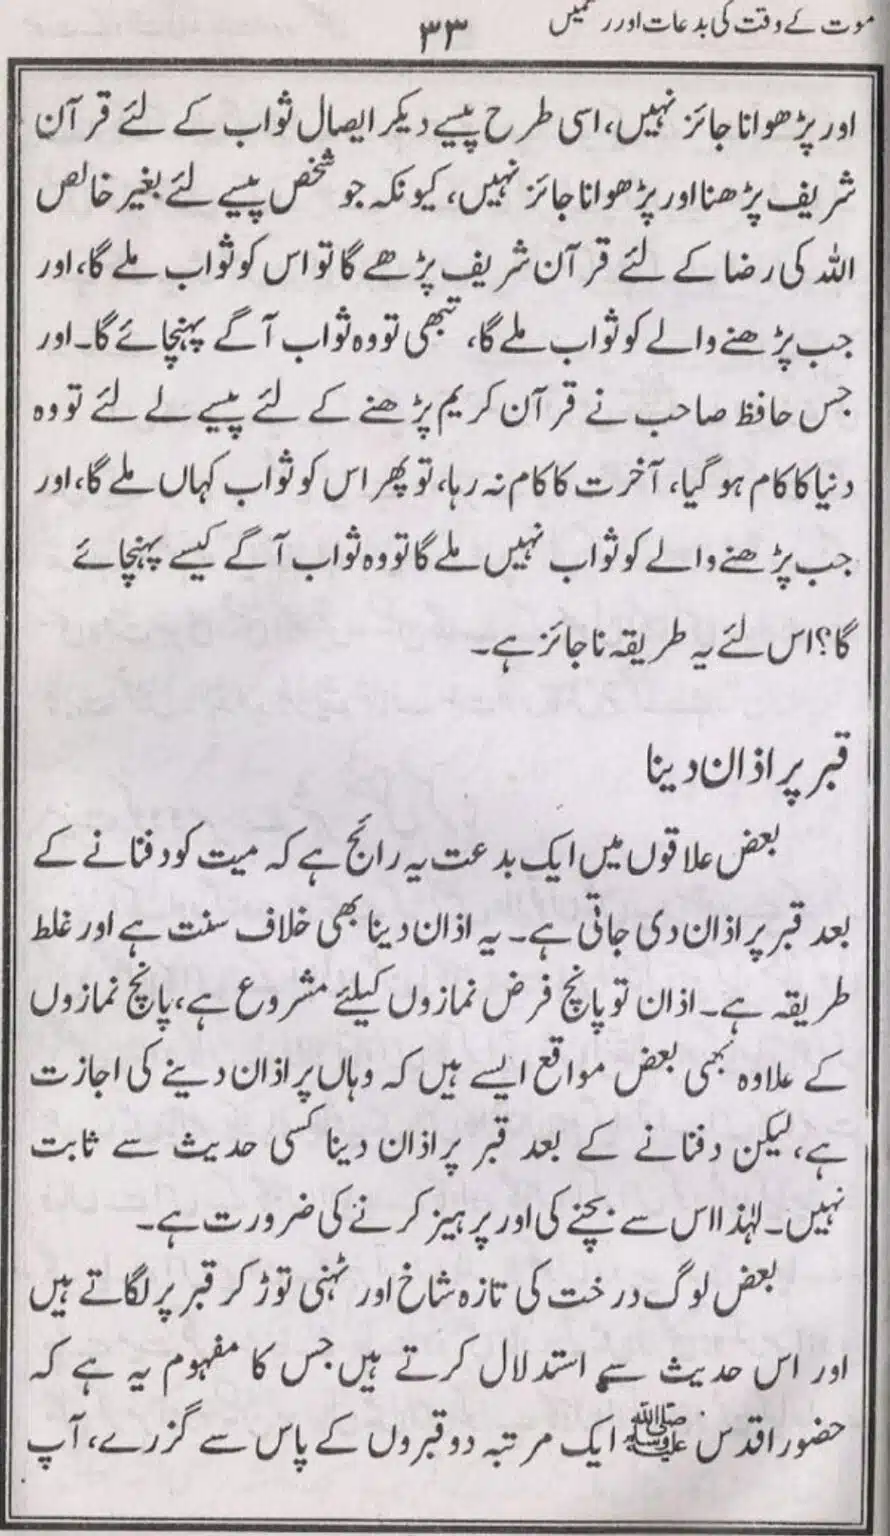 موت کے وقت کی بدعات اور رسمیں
۳۳
اور پڑھوانا جائز نہیں، اسی طرح پیسے دیکر ایصال ثواب کے لئے قرآن
شریف پڑھنا اور پڑھوانا جائز نہیں، کیونکہ جو شخص پیسے لئے بغیر خالص
اللہ کی رضا کے لئے قرآن شریف پڑھے گا تو اس کو ثواب ملے گا، اور
جب پڑھنے والے کو ثواب ملے گا، تبھی تو وہ ثواب آگے پہنچائے گا۔ اور
جس حافظ صاحب نے قرآن کریم پڑھنے کے لئے پیسے لے لئے تو وہ
دنیا کا کام ہو گیا، آخرت کا کام نہ رہا، تو پھر اس کو ثواب کہاں ملے گا، اور
جب پڑھنے والے کو ثواب نہیں ملے گا تو وہ ثواب آگے کیسے پہنچائے
گا؟ اس لئے یہ طریقہ ناجائز ہے۔
قبر پر اذان دینا
بعض علاقوں میں ایک بدعت یہ رائج ہے کہ میت کو دفنانے کے
بعد قبر پر اذان دی جاتی ہے۔ یہ اذان دینا بھی خلاف سنت ہے اور غلط
طریقہ ہے۔ اذان تو پانچ فرض نمازوں کیلئے مشروع ہے، پانچ نمازوں
کے علاوہ بھی بعض مواقع ایسے ہیں کہ وہاں پر اذان دینے کی اجازت
ہے، لیکن دفنانے کے بعد قبر پر اذان دینا کسی حدیث سے ثابت
نہیں۔ لہٰذا اس سے بچنے کی اور پرہیز کرنے کی ضرورت ہے۔
بعض لوگ درخت کی تازہ شاخ اور ٹہنی توڑ کر قبر پر لگاتے ہیں
اور اس حدیث سے استدلال کرتے ہیں جس کا مفہوم یہ ہے کہ
حضور اقدس ﷺ ایک مرتبہ دو قبروں کے پاس سے گزرے، آپ